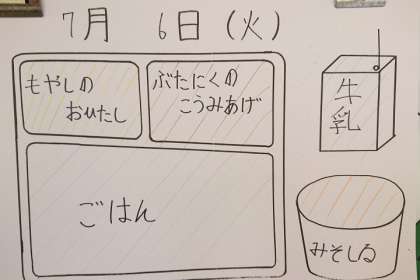 7月 6日(火)
もやしの
おひたし
ぶたにくの
こうみあげ
牛
乳
ごはん
みそしる